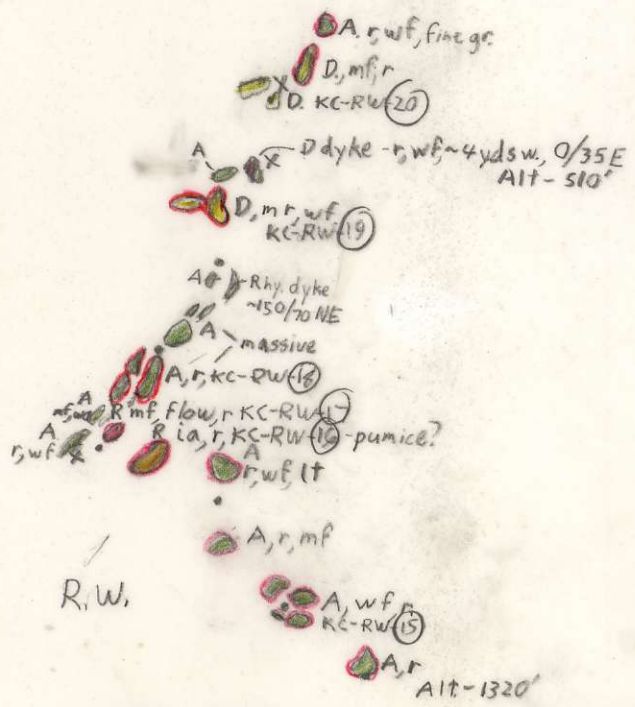 A. r, wf, fine gr.
D., mf, r
X
D. KC-RW-20
A
X
D dyke - r, wf, ~4 yds w., 0/35E
Alt - 510'
D, m r, wf
KC-RW-19
A
Rhy. dyke
~150/70 NE
A
massive
A, r, KC-RW-18
A
R mf, flow, r KC-RW-17
A
R ia, r, KC-RW-16 - pumice?
r, wf
X
A
r, wf, lt
A, r, mf
R.W.
A, wf, r
KC-RW-15
A, r
Alt - 1320'